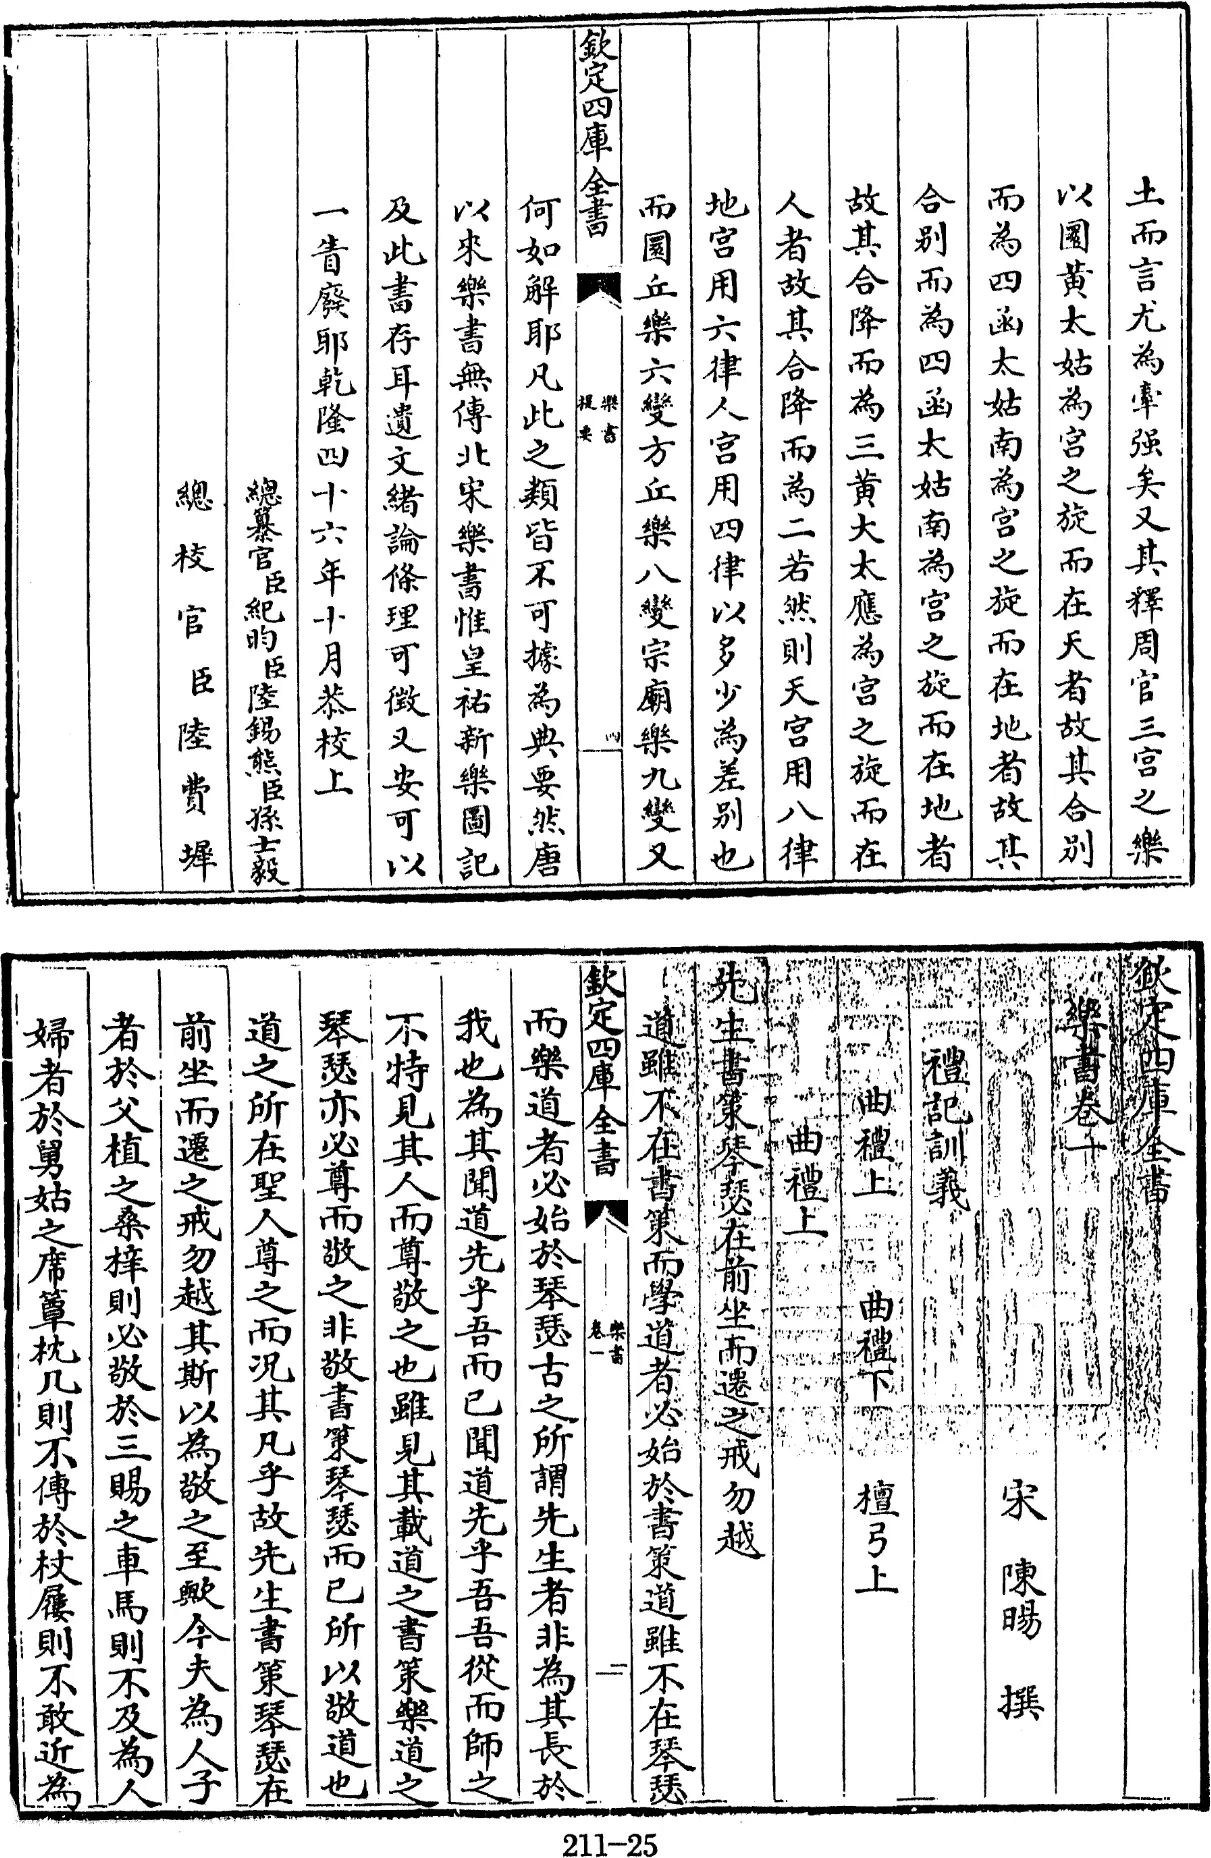 土而言尤為牽强矣又其釋周官三宮之樂
以圜黃太姑為宮之旋而在天者故其合别
而為四函太姑南為宮之旋而在地者故其
合别而為四函太姑南為宮之旋而在地者
故其合降而為三黃大太應為宮之旋而在
人者故其合降而為二若然則天宮用八律
地宮用六律人宮用四律以多少為差别也
而圜丘樂六變方丘樂八變宗廟樂九變又
欽定四庫全書
樂書
提要
四
何如解耶凡此之類皆不可據為典要然唐
以來樂書無傳北宋樂書惟皇祐新樂圖記
及此書存耳遺文緒論條理可徵又安可以
一眚廢耶乾隆四十六年十月恭校上
總纂官臣紀昀臣陸錫熊臣孫士毅
總校官臣陸費墀
欽定四庫全書
樂書卷一
宋 陳暘 撰
禮記訓義
曲禮上 曲禮下 檀弓上
曲禮上
先生書策琴瑟在前坐而遷之戒勿越
道雖不在書策而學道者必始於書策道雖不在琴瑟
欽定四庫全書
樂書
卷一
一
而樂道者必始於琴瑟古之所謂先生者非為其長於
我也為其聞道先乎吾而已聞道先乎吾吾從而師之
不特見其人而尊敬之也雖見其載道之書策樂道之
琴瑟亦必尊而敬之非敬書策琴瑟而已所以敬道也
道之所在聖人尊之而况其凡乎故先生書策琴瑟在
前坐而遷之戒勿越其斯以為敬之至歟今夫為人子
者於父植之桑梓則必敬於三賜之車馬則不及為人
婦者於舅姑之席簟枕几則不傳於杖屨則不敢近為
211-25